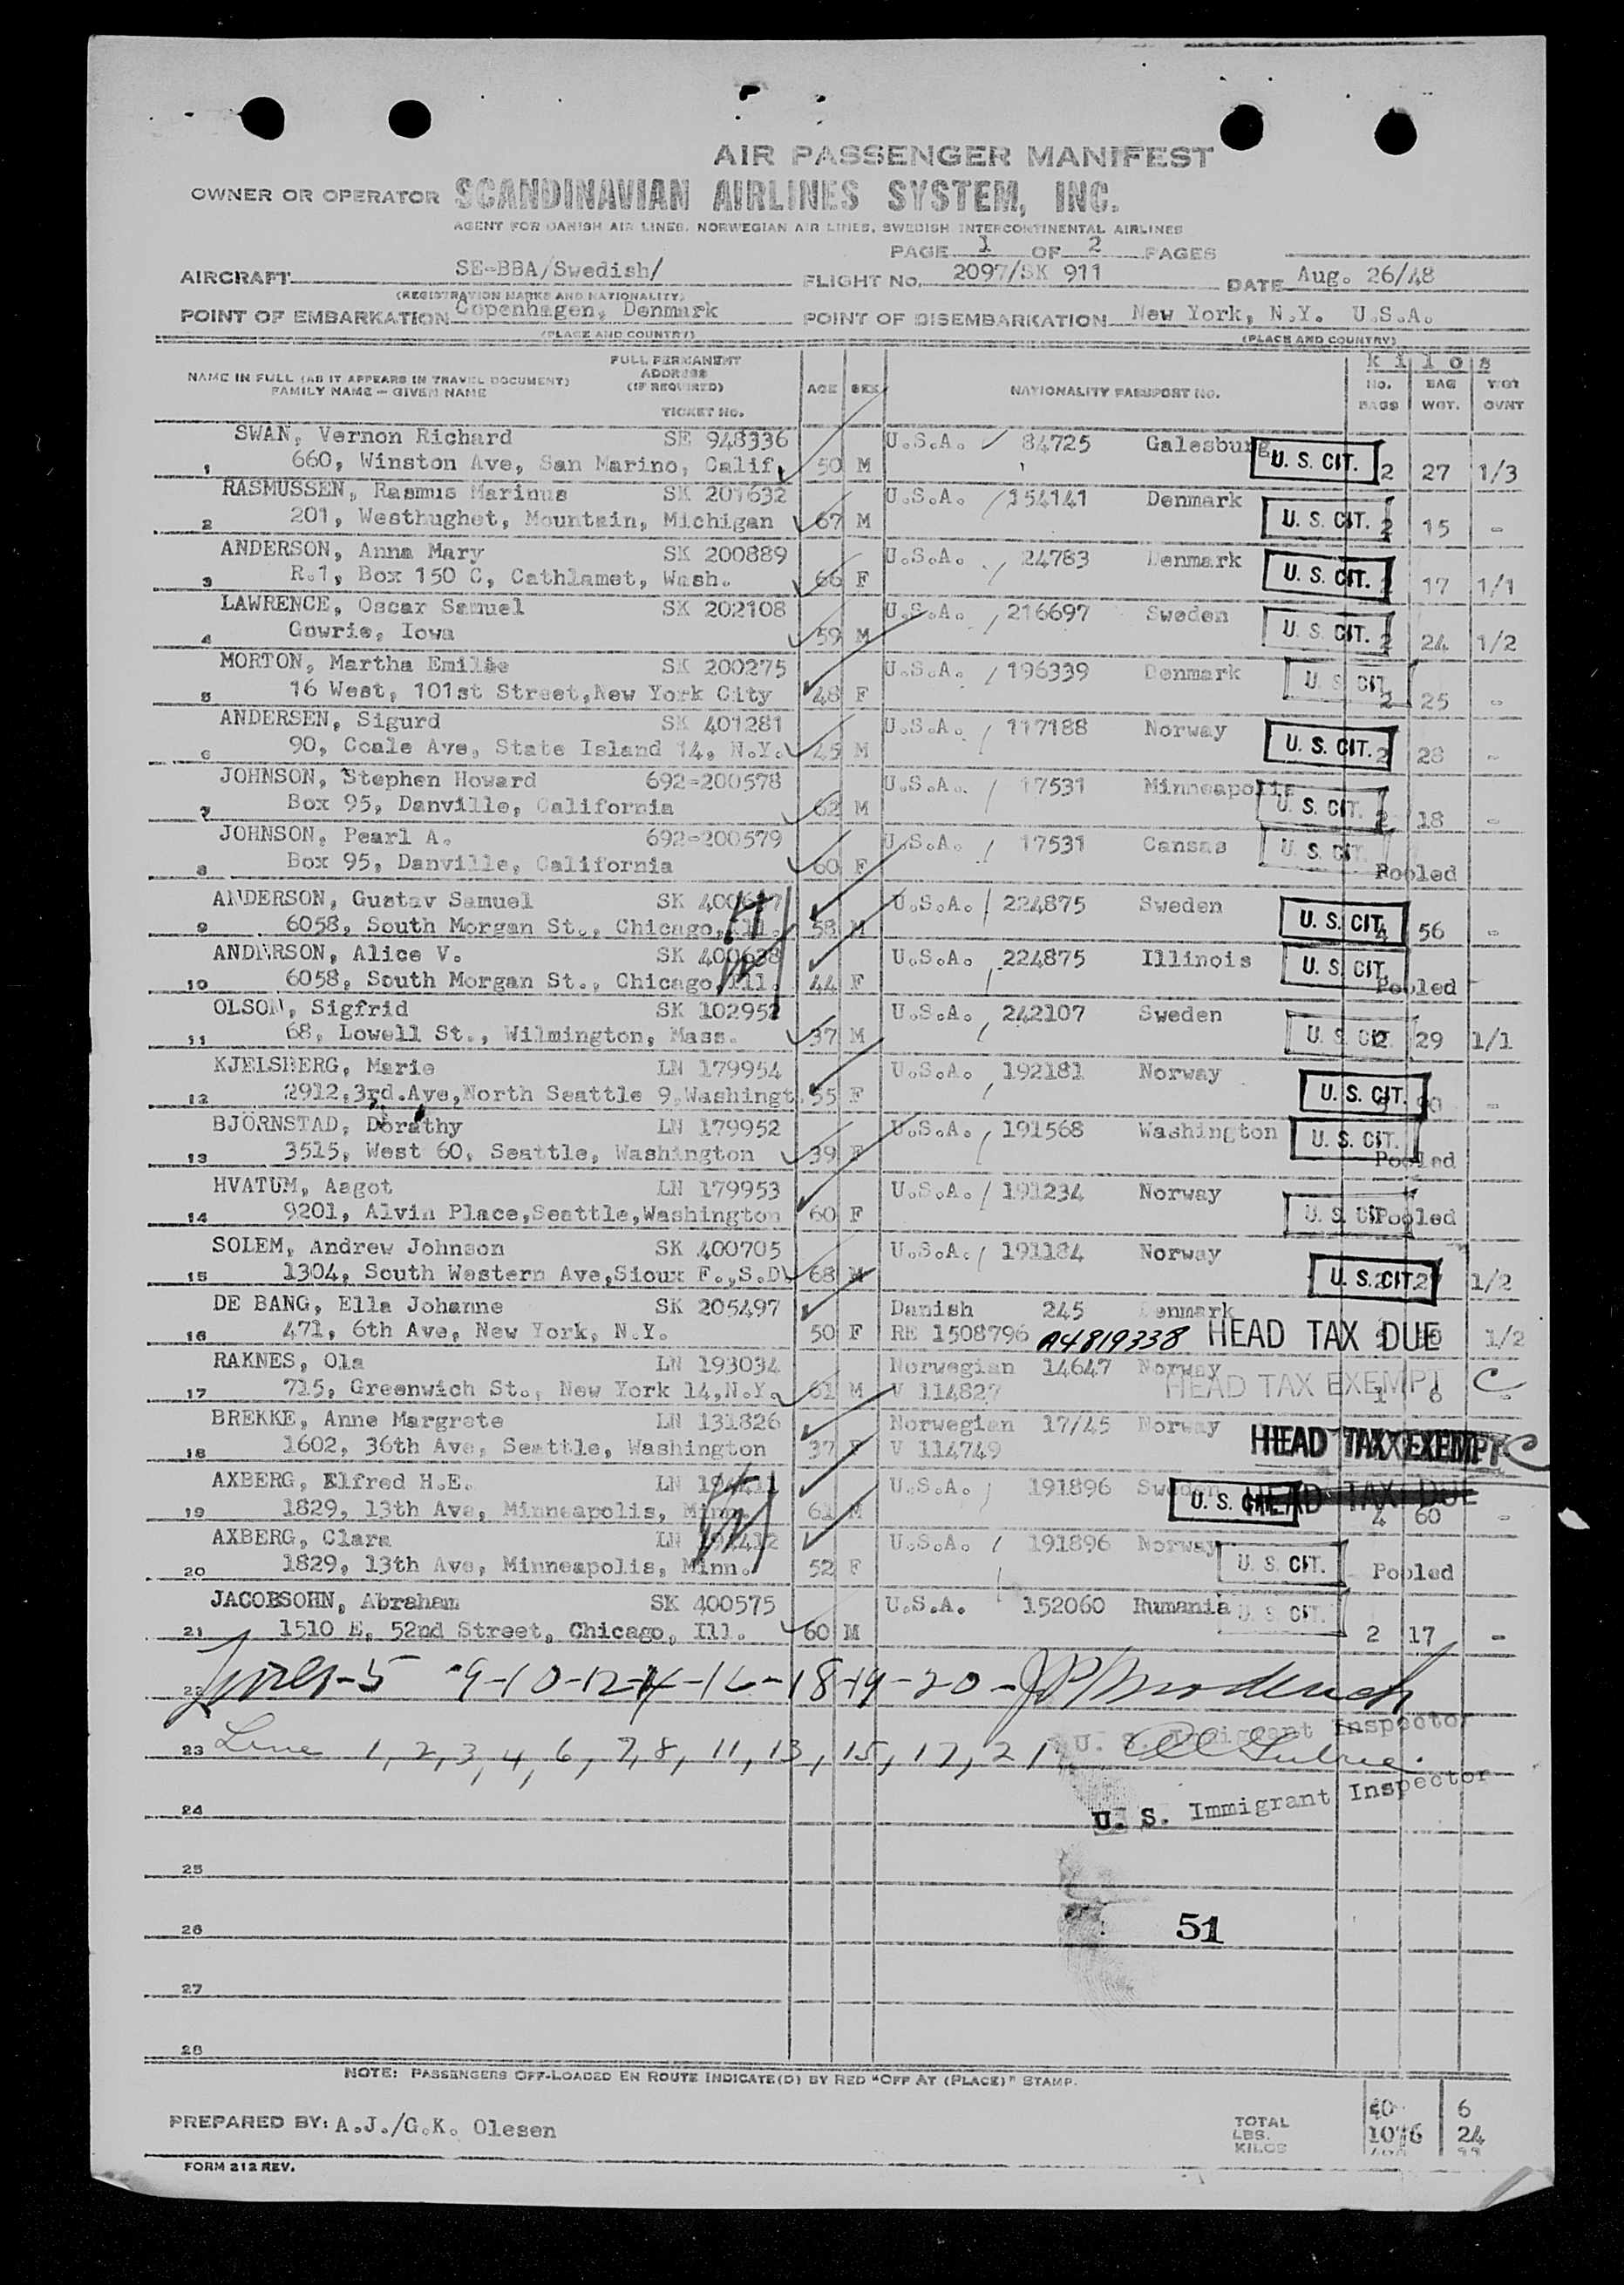 AIR PASSENGER MANIFEST
OWNER OR OPERATOR SCANDINAVIAN AIRLINES SYSTEM, INC.
AGENT FOR DANISH AIR LINES, NORWEGIAN AIR LINES, SWEDISH INTERCONTINENTAL AIRLINES
PAGE 1 OF 2 PAGES
AIRCRAFT SE-BBA/Swedish/ FLIGHT No. 2097/SK 911 DATE Aug. 26/48
(REGISTRATION MARKS AND NATIONALITY)
POINT OF EMBARKATION Copenhagen, Denmark POINT OF DISEMBARKATION New York, N.Y. U.S.A.
(PLACE AND COUNTRY) (PLACE AND COUNTRY)
NAME IN FULL (AS IT APPEARS IN TRAVEL DOCUMENT) FAMILY NAME – GIVEN NAME FULL PERMANENT ADDRESS (IF REQUIRED) TICKET No. AGE SEX NATIONALITY PASSPORT No. K i l o s No. BAGS BAG WGT. WGT OVNT
SWAN, Vernon Richard SE 948336 U.S.A. 84725 Galesburg U. S. CIT.
1 660, Winston Ave, San Marino, Calif. 50 M 2 27 1/3
RASMUSSEN, Rasmus Marinus SK 201632 U.S.A. 154141 Denmark U. S. CIT.
2 201, Westhughet, Mountain, Michigan 67 M 2 15 -
ANDERSON, Anna Mary SK 200889 U.S.A. 24783 Denmark U. S. CIT.
3 R.1, Box 150 C, Cathlamet, Wash. 66 F 17 1/1
LAWRENCE, Oscar Samuel SK 202108 U.S.A. 216697 Sweden U. S. CIT.
4 Gowrie, Iowa 59 M 2 24 1/2
MORTON, Martha Emilie SK 200275 U.S.A. 196339 Denmark U. S. CIT.
5 16 West, 101st Street,New York City 48 F 2 25 -
ANDERSEN, Sigurd SK 401281 U.S.A. 117188 Norway U. S. CIT.
6 90, Coale Ave, State Island 14, N.Y. 45 M 2 28 -
JOHNSON, Stephen Howard 692-200578 U.S.A. 17531 Minneapolis U. S. CIT.
7 Box 95, Danville, California 62 M 2 18 -
JOHNSON, Pearl A. 692-200579 U.S.A. 17531 Cansas U. S. CIT.
8 Box 95, Danville, California 60 F Pooled
ANDERSON, Gustav Samuel SK U.S.A. 224875 Sweden U. S. CIT.
9 6058, South Morgan St., Chicago, Ill. 58 M 4 56 -
ANDERSON, Alice V. SK 400638 U.S.A. 224875 Illinois U. S. CIT.
10 6058, South Morgan St., Chicago, Ill. 44 F Pooled
OLSON, Sigfrid SK 102952 U.S.A. 242107 Sweden U. S. CIT.
11 68, Lowell St., Wilmington, Mass. 37 M 2 29 1/1
KJELSBERG, Marie LN 179954 U.S.A. 192181 Norway U. S. CIT.
12 2912,3rd.Ave,North Seattle 9,Washingt. 55 F -
BJÖRNSTAD, Dorathy LN 179952 U.S.A. 191568 Washington U. S. CIT.
13 3515, West 60, Seattle, Washington 39 F Pooled
HVATUM, Aagot LN 179953 U.S.A. 191234 Norway U. S. CIT.
14 9201, Alvin Place,Seattle,Washington 60 F Pooled
SOLEM, Andrew Johnson SK 400705 U.S.A. 191184 Norway U. S. CIT.
15 1304, South Western Ave,Sioux F.,S.D. 68 M 2 27 1/2
DE BANG, Ella Johanne SK 205497 Danish 245 Denmark
16 471, 6th Ave, New York, N.Y. 50 F RE 1508796 A4819338 HEAD TAX DUE 1/2
RAKNES, Ola LN 193034 Norwegian 14647 Norway HEAD TAX EXEMPT C
17 715, Greenwich St., New York 14,N.Y. 61 M V 114827 1 6 -
BREKKE, Anne Margrete LN 131826 Norwegian 17/45 Norway HEAD TAX EXEMPT C
18 1602, 36th Ave, Seattle, Washington 37 F V 114749
AXBERG, Elfred H.E. LN U.S.A. 191896 Sweden U. S. CIT. HEAD TAX DUE
19 1829, 13th Ave, Minneapolis, Minn. 61 M 4 60 -
AXBERG, Clara LN U.S.A. 191896 Norway U. S. CIT.
20 1829, 13th Ave, Minneapolis, Minn. 52 F Pooled
JACOBSOHN, Abraham SK 400575 U.S.A. 152060 Rumania U. S. CIT.
21 1510 E, 52nd Street, Chicago, Ill. 60 M 2 17 -
22 Lines-5 -9-10-12-14-16-18-19-20-
U. S. Immigrant Inspector
23 Line 1, 2, 3, 4, 6, 7, 8, 11, 13, 15, 17, 21
U. S. Immigrant Inspector
24
25
26 51
27
28
NOTE: PASSENGERS OFF-LOADED EN ROUTE INDICATE(D) BY RED "OFF AT (PLACE)" STAMP.
PREPARED BY: A.J./G.K. Olesen TOTAL 40 6
LBS. 1076 24
KILOS
FORM 212 REV.